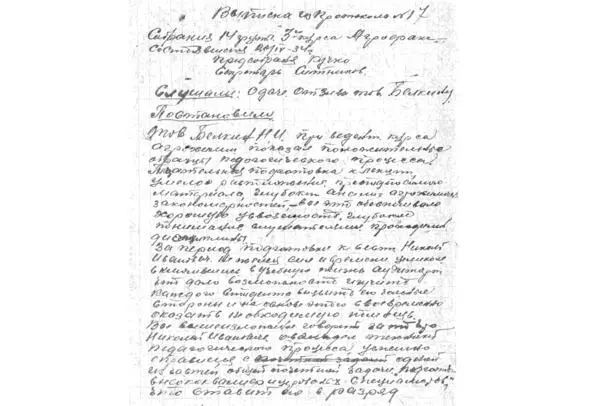 Выписка из Протокола №17
Собрания 14 группы 3го курса Агрофака
состоявшегося 24/IV-34г.
Предсобрания Кучко
Секретарь Ситников.
Слушали: О даче отзыва тов. Белкину
Постановили
Тов Белкин Н.И. при ведении курса
агрохимии показал положительные
образцы педагогического процесса
Тщательная подготовка к лекции,
умелое расположение
материала, глубокий анализ агрохимических
закономерностей – все это обеспечивало
хорошую усвояемость, глубокое
понимание слушателями проходимой
дисциплины
За период подготовки к весне Николай
Иванович не жалея сил и времени умелое
вклинивание в учебную жизнь аудитории
что дало возможность изучить
каждого студента выявить его слабые
стороны и на основе этого своевременно
оказать необходимую помощь.
Все вышеизложенное говорит за то что
Николай Иванович овладел техникой
педагогического процесса успешно
справился с одной
из частей общей почетной задачи, подготовки
высококвалифицированных специалистов,
что ставит его в разряд